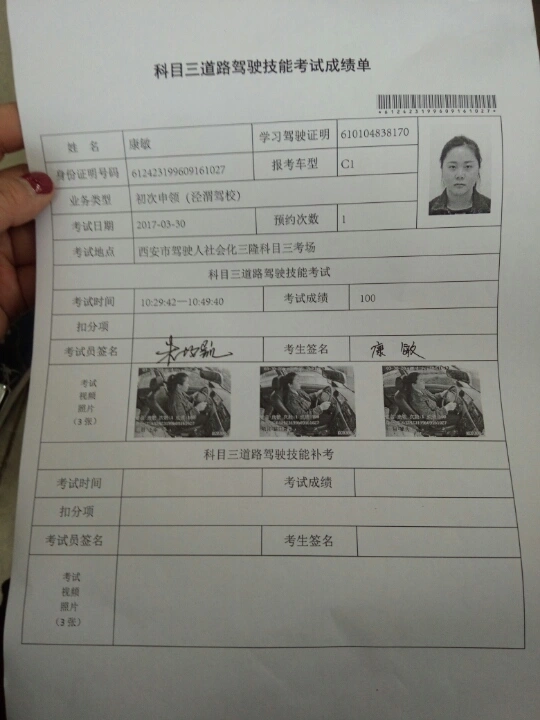 科目三道路驾驶技能考试成绩单
*612423199609161027*
姓 名 康敏 学习驾驶证明 610104838170
身份证明号码 612423199609161027 报考车型 C1
业务类型 初次申领（泾渭驾校）
考试日期 2017-03-30 预约次数 1
考试地点 西安市驾驶人社会化三隆科目三考场
科目三道路驾驶技能考试
考试时间 10:29:42—10:49:40 考试成绩 100
扣分项
考试员签名 考生签名 康敏
考试
视频
照片
（3 张）
科目三道路驾驶技能补考
考试时间 考试成绩
扣分项
考试员签名 考生签名
考试
视频
照片
（3 张）